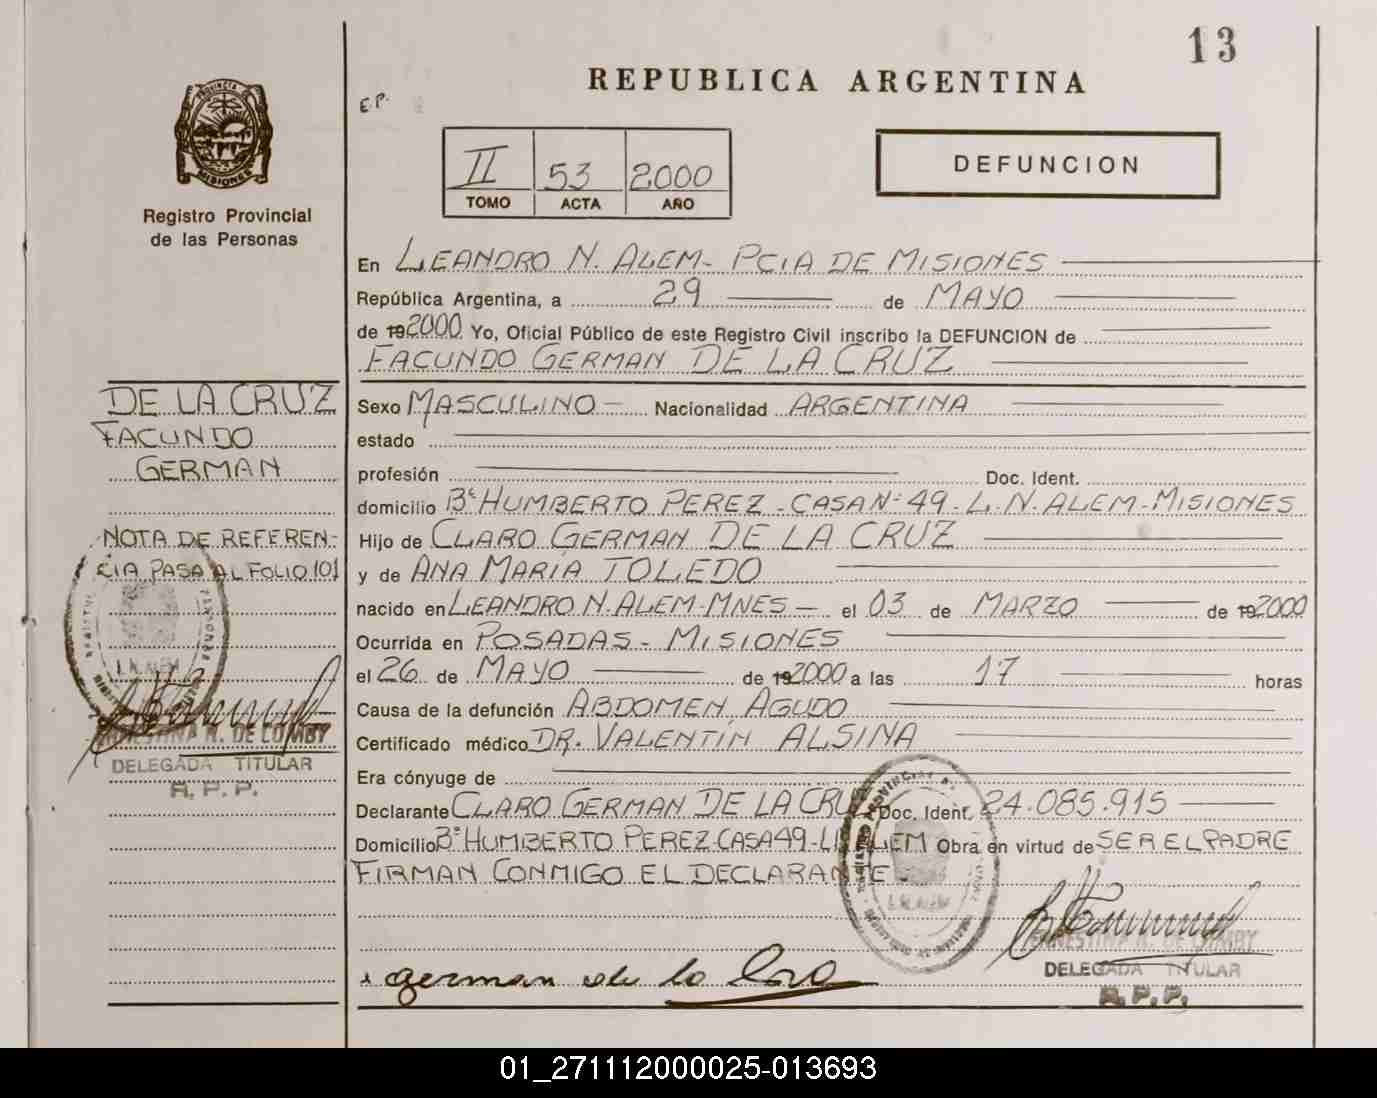 13
REPUBLICA ARGENTINA
E.P.
PROVINCIA DE
MISIONES
Registro Provincial
de las Personas
II 53 2000
TOMO ACTA AÑO
DEFUNCION
En LEANDRO N. ALEM - PCIA DE MISIONES
República Argentina, a 29 de MAYO
de 192000 Yo, Oficial Público de este Registro Civil inscribo la DEFUNCION de
FACUNDO GERMAN DE LA CRUZ
DE LA CRUZ
FACUNDO
GERMAN
NOTA DE REFEREN-
CIA PASA AL FOLIO 101
L.N. ALEM
ERNESTINA R. DE COMBY
DELEGADA TITULAR
R.P.P.
Sexo MASCULINO - Nacionalidad ARGENTINA
estado
profesión Doc. Ident.
domicilio Bº HUMBERTO PEREZ - CASA Nº 49 - L. N. ALEM - MISIONES
Hijo de CLARO GERMAN DE LA CRUZ
y de ANA MARIA TOLEDO
nacido en LEANDRO N. ALEM - MNES - el 03 de MARZO de 192000
Ocurrida en POSADAS - MISIONES
el 26 de MAYO de 192000 a las 17 horas
Causa de la defunción ABDOMEN AGUDO
Certificado médico DR. VALENTIN ALSINA
Era cónyuge de
Declarante CLARO GERMAN DE LA CRUZ Doc. Ident. 24.085.915
Domicilio Bº HUMBERTO PEREZ - CASA 49 - L.N. ALEM Obra en virtud de SER EL PADRE
FIRMAN CONMIGO EL DECLARANTE.
L.N. ALEM
german de la Cruz
ERNESTINA R. DE COMBY
DELEGADA TITULAR
R.P.P.
01_271112000025-013693